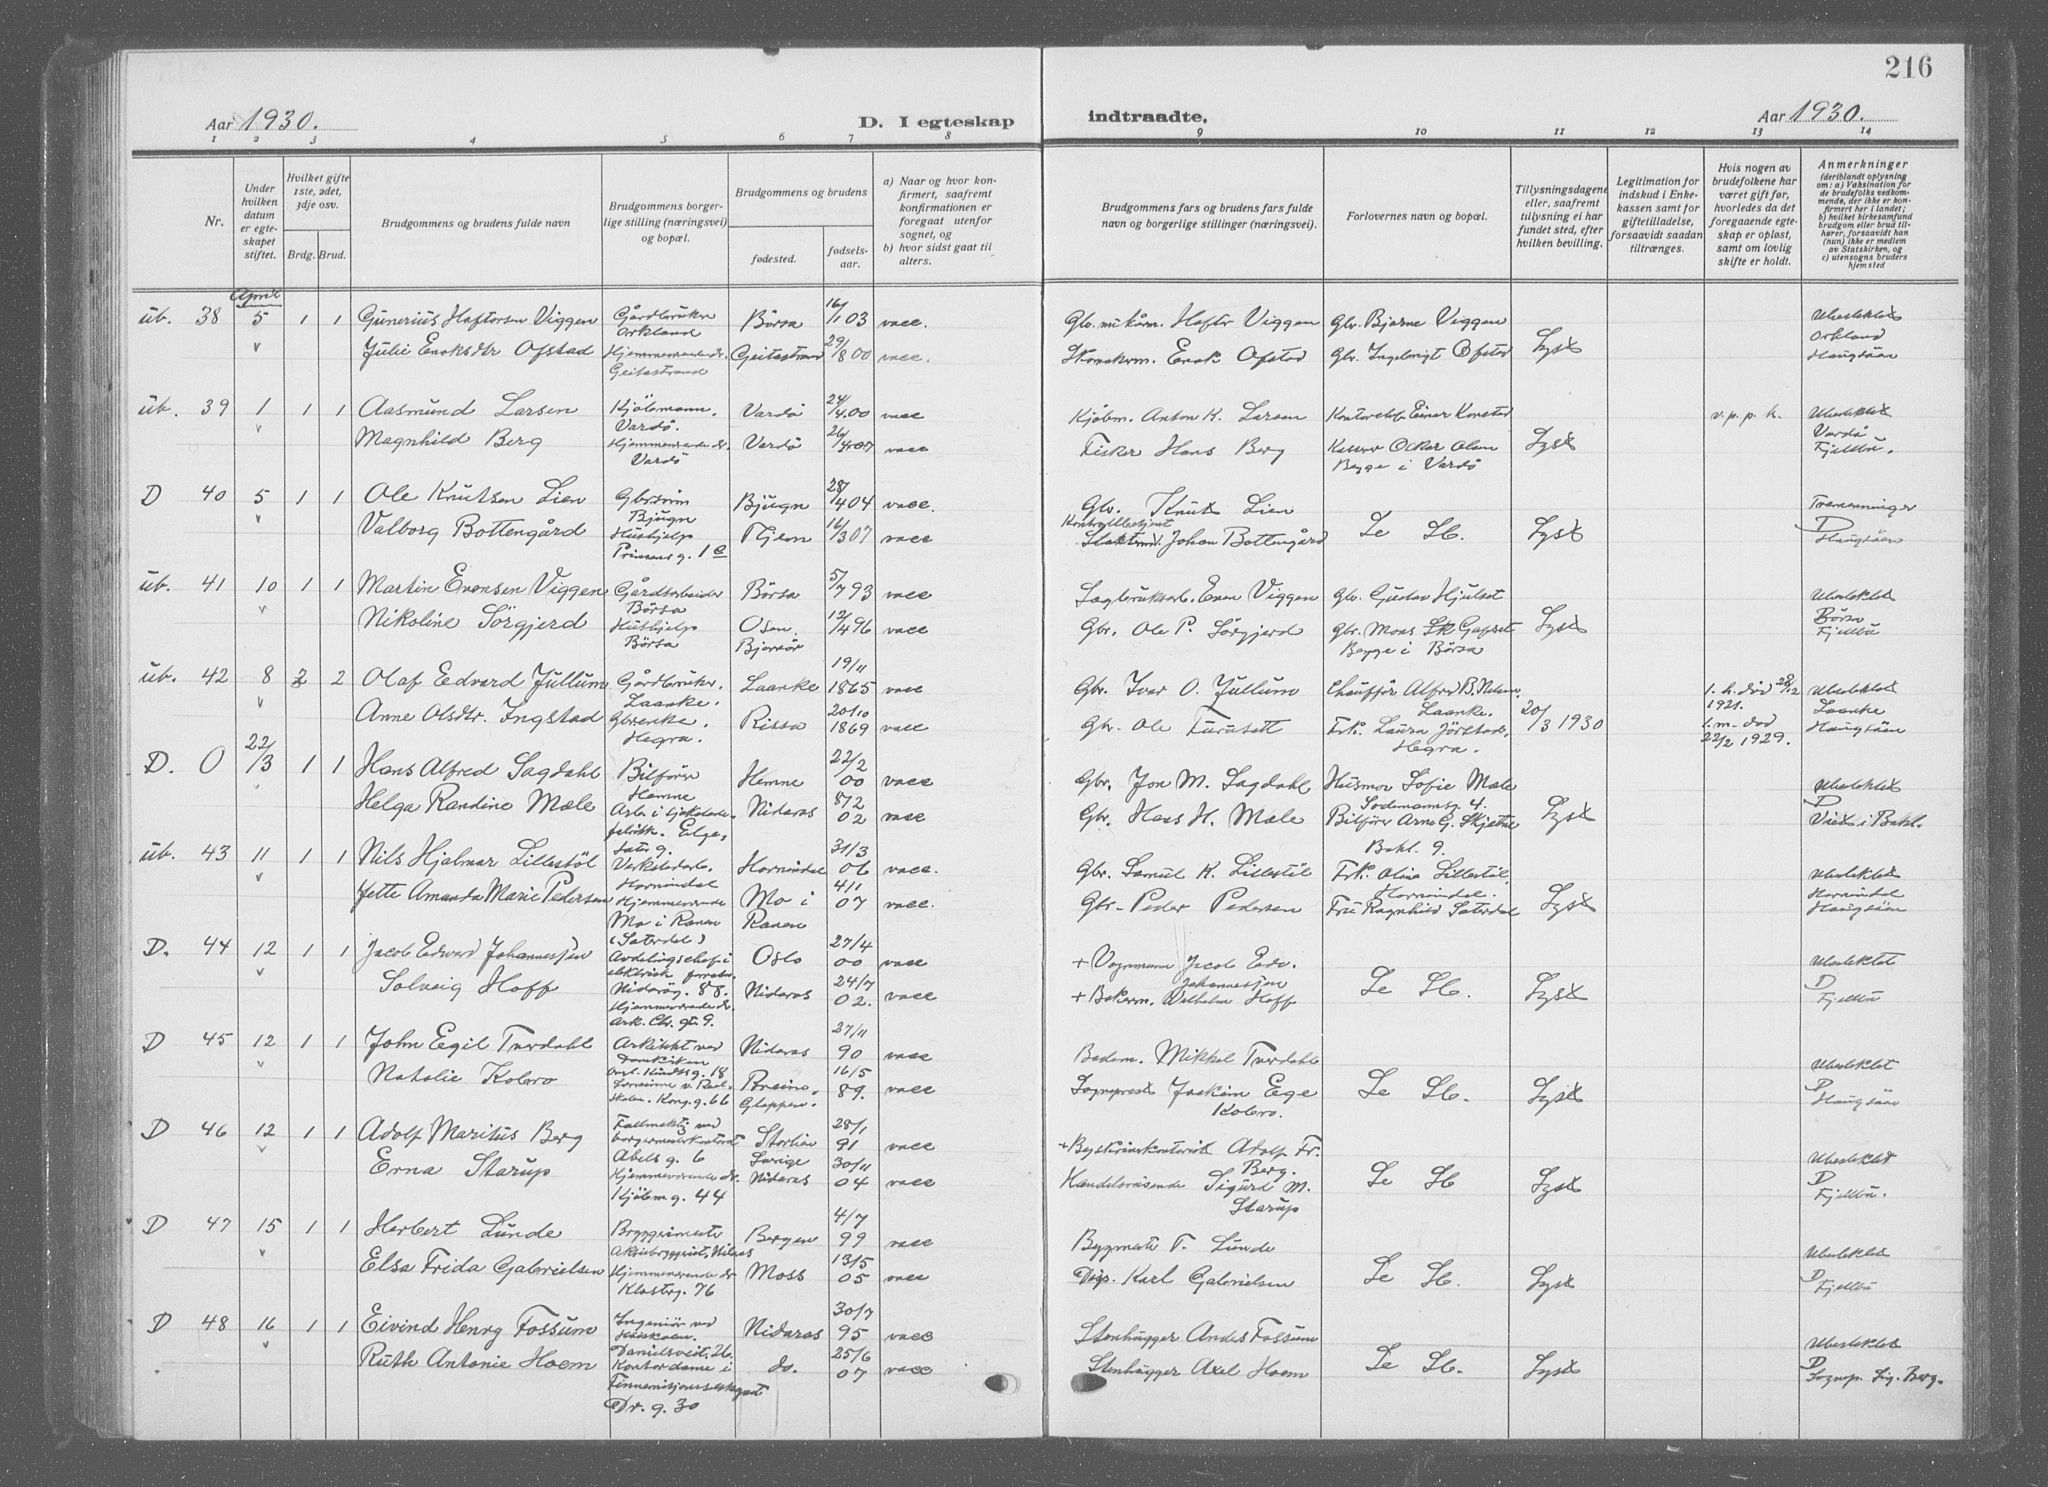 216
Aar 1930.
D. I egteskap
indtraadte.
Aar 1930.
1 2 3 4 5 6 7 8 9 10 11 12 13 14
Nr.
Under hvilken datum er egteskapet stiftet.
Hvilket gifte 1ste, 2det, 3dje osv.
Brdg. Brud.
Brudgommens og brudens fulde navn
Brudgommens borgerlige stilling (næringsvei) og bopæl.
Brudgommens og brudens
fødested.
fødselsaar.
a) Naar og hvor konfirmert, saafremt konfirmationen er foregaat utenfor sognet, og
b) hvor sidst gaat til alters.
Brudgommens fars og brudens fars fulde navn og borgerlige stillinger (næringsvei).
Forlovernes navn og bopæl.
Tillysningsdagene eller, saafremt tillysning ei har fundet sted, efter hvilken bevilling.
Legitimation for indskud i Enkekassen samt for giftetilladelse, forsaavidt saadan tiltrænges.
Hvis nogen av brudefolkene har været gift før, hvorledes da det foregaaende egteskap er opløst, samt om lovlig skifte er holdt.
Anmerkninger
(deriblandt oplysning om: a) Vaksination for de brudefolks vedkommende, der ikke er konfirmert her i landet; b) hvilket kirkesamfund brudgom eller brud tilhører, forsaavidt han (hun) ikke er medlem av Statskirken, og c) utensogns bruders hjemsted
April
ub. 38 5 1 1 Gunerius Haftorsen Viggen Gårdbruker Orkland Børsa 16/1 03 vacc. Haftor Viggen Gbr. Bjarne Viggen Lyst Ubeslektet Orkland
Julie Enoksdtr Ofstad Hjemmeværende dr. Geitastrand Geitastrand 29/8 00 vacc. Enok Ofstad Gbr. Ingebrigt Ofstad Haugsåen
ub. 39 1 1 1 Aasmund Larsen Kjøbmann, Vardø. Vardø 24/4 00 vacc Kjøbm. Anton K. Larsen Einar Konstad Lyst v.p.p.h. Ubeslektet Vardø
Magnhild Berg Hjemmeværende dr. Vardø Vardø 26/4 07 vacc Fisker Hans Berg Oskar Olsen Begge i Vardø Fjellbu.
D 40 5 1 1 Ole Knutsen Lien Bjugn Bjugn 28/4 04 vacc. Gbr. Knut Lien Se Sb. Lyst Tremenninger D
Valborg Bottengård Hushjelp Prinsens g. 1 c Thjem 16/3 07 vacc Johan Bottengård Haugsåen
ub. 41 10 1 1 Martin Evensen Viggen Gårdsarbeider Børsa Børsa 5/7 93 vacc Sagbruksarb. Even Viggen Gbr. Gustav Hjulset Lyst Ubeslektet Børsa
Nikoline Sörgjerd Hushjelp Børsa Osen Bjørnør 12/4 96 vacc Gbr. Ole P. Sörgjerd Gbr. Mons Begge i Børsa Fjellbu
ub. 42 8 2 2 Olaf Edvard Jullum Gårdbruker. Laanke. Laanke 19/11 1865 vacc Gbr. Ivar O. Jullum Chauffør Alfred B. Nilsen, Laanke. 20/3 1930 1. h. død 28/12 1921. Ubeslektet Laanke
Anne Olsdtr. Ingstad Gbrenke. Hegra. Rissa 20/10 1869 vacc Gbr. Ole Furuset Frk. Laura Jörstad, Hegra. 1. m. død 22/2 1929. Haugsåen
D. 0 22/3 1 1 Hans Alfred Sagdahl Bilförer Hemne Hemne 22/2 00 vacc Gbr. Jon M. Sagdahl Husmor Sofie Mæle Sodemannsg. 4. Lyst Ubeslektet D
Helga Randine Mæle Arb. i sjokoladefabrikk. Nidaros 8/2 02 vacc Gbr. Hans H. Mæle Bilförer Arne G. Skjetne Bakl. 9. Viet i Bakl.
ub. 43 11 1 1 Nils Hjalmar Lillestöl Hornindal Hornindal 31/3 06 vacc. Gbr. Samuel K. Lillestöl Frk. Olina Lillestöl, Hornindal. Lyst Ubeslektet Hornindal
Jette Amanda Marie Pedersen Hjemmeværende Mo i Ranen (Saterdal) Mo i Ranen 4/11 07 vacc. Gbr. Peder Pedersen Fru Ragnhild Saterdal Haugsåen
D. 44 12 1 1 Jacob Edward Johannessen Avdelingschef i elektrisk forretn. Nidaróg. 88. Oslo 27/4 00 vacc + Vognmann Jacob Edv. Johannessen Se Sb. Lyst Ubeslektet D
Solveig Hoff Hjemmeværende dr. Ark. Chr. gt. 9. Nidaros 24/7 02. vacc + Bakerm. Wilhelm Hoff Fjellbu
D 45 12 1 1 John Egil Tverdahl Arkitekt ved Domkirken Nidaros 27/11 90 vacc Mikkel Tverdahl Se Sb. Lyst Ubeslektet D
Natalie Kobro Kong. g. 66 Breim, Gloppen. 16/5 89. vacc Sogneprest Joakim Ege Kobro. Haugsåen
D 46 12 1 1 Adolf Maritus Berg Fullmektig ved borgermesterkontoret Abels g. 6 Storlien Sverige 28/1 91 vacc + Adolf Fr. Berg. Se Sb Lyst Ubeslektet D
Erna Starup Hjemmeværende dr. Kjøbm. g. 44 Nidaros 30/11 04 vacc Handelsreisende Sigurd M. Starup Fjellbu.
D 47 15 1 1 Herbert Lunde Bryggerimester Aktiebryggeriet, Nidaros Bergen 4/7 99 vacc Bygmester T. Lunde Se Sb. Lyst Ubeslektet D
Elsa Frida Gabrielsen Hjemmeværende dr Klostrg. 76 Moss 13/5 05 vacc Disp. Karl Gabrielsen Fjellbu
D 48 16 1 1 Eivind Henry Fossum Ingeniör ved Höiskolen. Danielsveit. 26. Nidaros 30/7 95 vacc Stenhugger Anders Fossum Se Sb. Lyst Ubeslektet D
Ruth Antonie Hoem Kontordame i Finnemisjonssekretariat Dr. g. 30 do. 25/6 07 vacc Stenhugger Axel Hoem Sognepr. Sig. Berg.